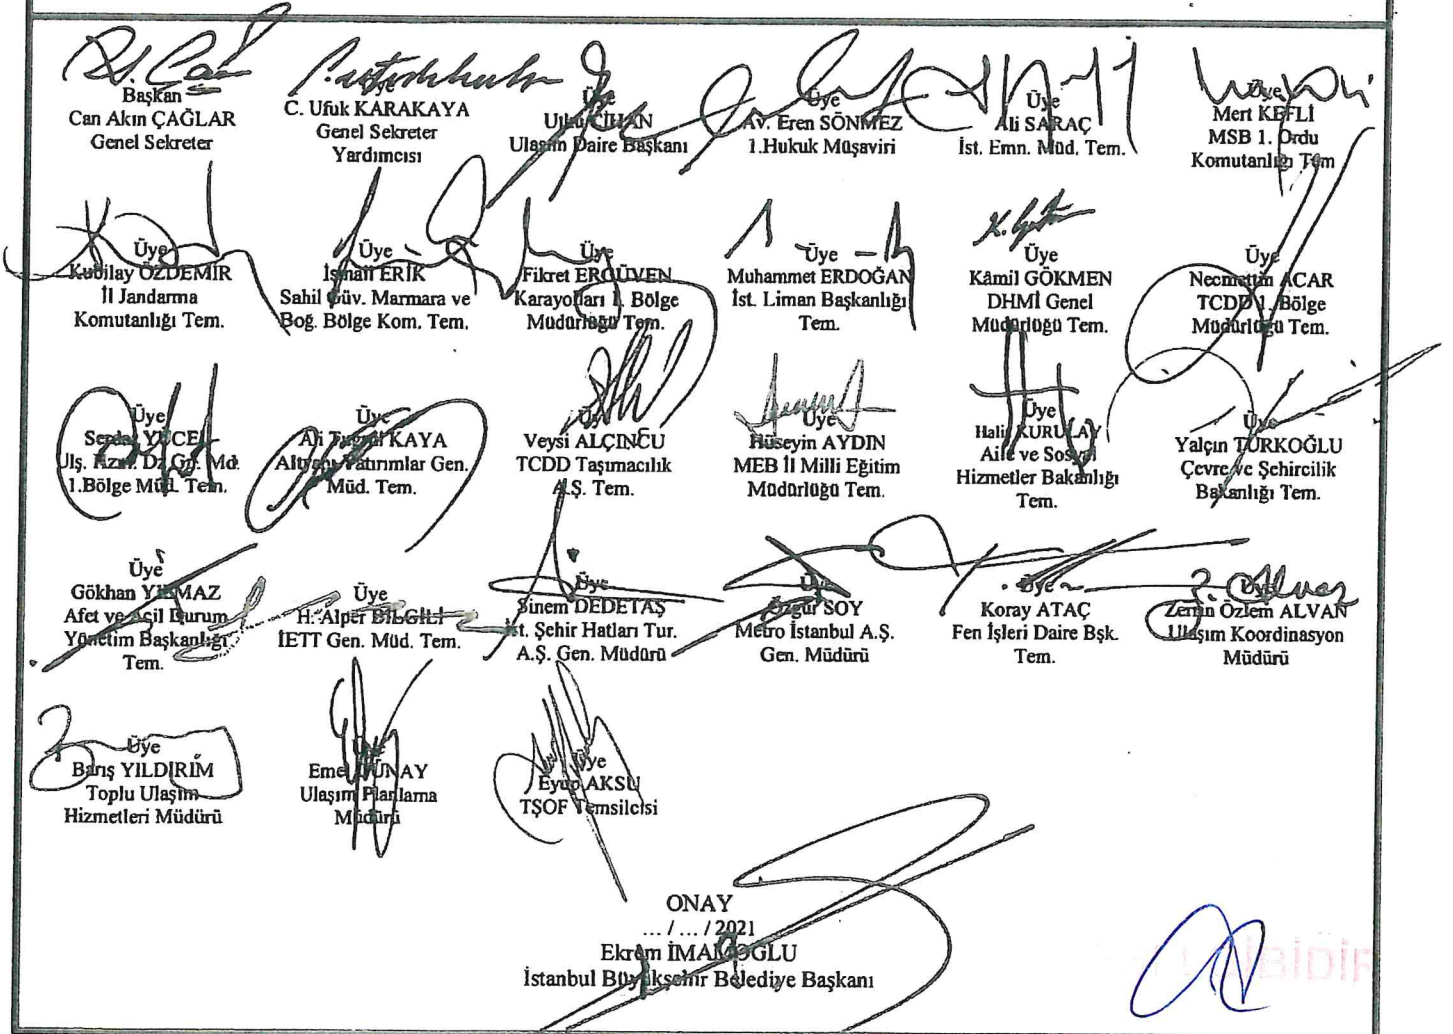 Başkan
Can Akın ÇAĞLAR
Genel Sekreter
Üye
C. Ufuk KARAKAYA
Genel Sekreter
Yardımcısı
Üye
Utku CİHAN
Ulaşım Daire Başkanı
Üye
Av. Eren SÖNMEZ
1.Hukuk Müşaviri
Üye
Ali SARAÇ
İst. Emn. Müd. Tem.
Üye
Mert KEFLİ
MSB 1. Ordu
Komutanlığı Tem
Üye
Kubilay ÖZDEMİR
İl Jandarma
Komutanlığı Tem.
Üye
İsmail ERİK
Sahil Güv. Marmara ve
Boğ. Bölge Kom. Tem.
Üye
Fikret ERGÜVEN
Karayolları 1. Bölge
Müdürlüğü Tem.
Üye
Muhammet ERDOĞAN
İst. Liman Başkanlığı
Tem.
Üye
Kâmil GÖKMEN
DHMİ Genel
Müdürlüğü Tem.
Üye
Necmettin ACAR
TCDD 1. Bölge
Müdürlüğü Tem.
Üye
Serdar YÜCEL
Ulş. Dz Md.
1.Bölge Müd. Tem.
Üye
Ali Tuğrul KAYA
Altyapı Yatırımlar Gen.
Müd. Tem.
Üye
Veysi ALÇINCU
TCDD Taşımacılık
A.Ş. Tem.
Üye
Hüseyin AYDIN
MEB İl Milli Eğitim
Müdürlüğü Tem.
Üye
Halit KURULAY
Aile ve Sosyal
Hizmetler Bakanlığı
Tem.
Üye
Yalçın TÜRKOĞLU
Çevre ve Şehircilik
Bakanlığı Tem.
Üye
Gökhan YILMAZ
Afet ve Acil Durum
Yönetim Başkanlığı
Tem.
Üye
H. Alper BİLGİLİ
İETT Gen. Müd. Tem.
Üye
Sinem DEDETAŞ
İst. Şehir Hatları Tur.
A.Ş. Gen. Müdürü
Üye
Özgür SOY
Metro İstanbul A.Ş.
Gen. Müdürü
Üye
Koray ATAÇ
Fen İşleri Daire Bşk.
Tem.
Üye
Zerrin Özlem ALVAN
Ulaşım Koordinasyon
Müdürü
Üye
Barış YILDIRIM
Toplu Ulaşım
Hizmetleri Müdürü
Üye
Emel GÜNAY
Ulaşım Planlama
Müdürü
Üye
Eyup AKSU
TŞOF Temsilcisi
ONAY
... / ... / 2021
Ekrem İMAMOĞLU
İstanbul Büyükşehir Belediye Başkanı